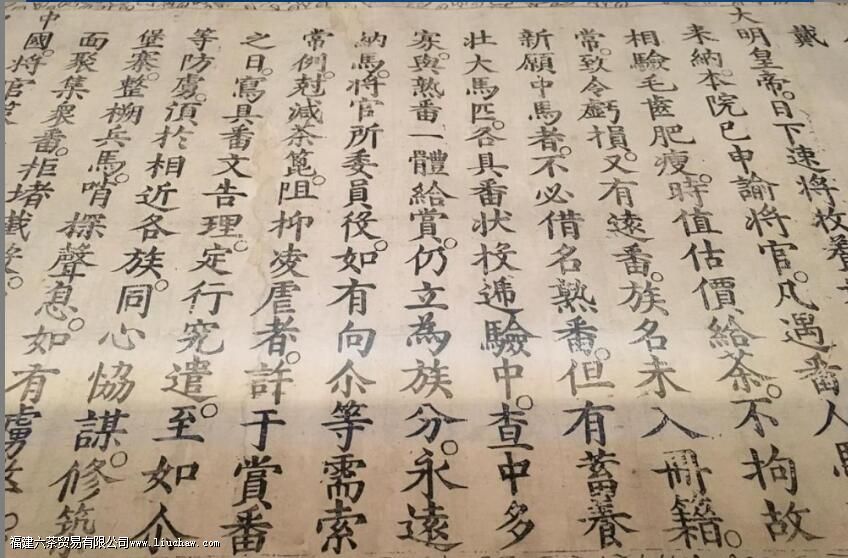 戴
大明皇帝。日下速將牧養
来納。本院已申諭將官。凡遇番人馬
相驗毛齒肥瘦。時值估價給茶。不拘故
常。致令虧損。又有遠番。族名未入冊籍。
新願中馬者。不必借名熟番。但有蓄養
壯大馬匹。各具番狀投遞驗中。查中多
寡。與熟番一體給賞。仍立為族分。永遠
納馬。將官所委員役。如有向尒等需索
常例。尅減茶篦。阻抑凌虐者。許于賞番
之日。寫具番文告理。定行究遣。至如尒
等防虜。須於相近各族。同心協謀。修築
堡寨。整搠兵馬。哨探聲息。如有虜
面聚集衆番。拒堵截殺。
中國。將官
福建六茶贸易有限公司www.liuchaw.com